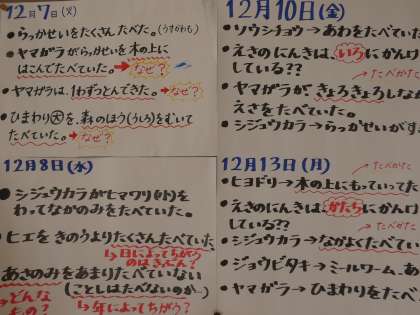 12月7日(火)
・らっかせいをたくさんたべた。(うすがわも)
・ヤマガラがらっかせいを木の上に
はこんでたべていた。→なぜ?
・ヤマガラは、1わずつとんできた。→なぜ?
・ひまわり大を、森のほう(うしろ)をむいて
たべていた。→なぜ?
12月8日(水)
●シジュウカラがヒマワリ(小)を
わってなかのみをたべていた。
・ヒエをきのうよりたくさんたべていた。
↳日によってちがう
のはきぶん?
あさのみをあまりたべていない
(ことしはたべないのか…)
→どんな
もの?
↳年によってちがう?
12月10日(金)
・ソウシチョウ→あわをたべていた
・えさのにんきは、いろにかんけ
している??
→たべかた
・ヤマガラが、きょろきょろしなが
えさをたべていた。
・シジュウカラ→らっかせいがす
12月13日(月)
→たべかた
・ヒヨドリ→木の上にもっていってた
・えさのにんきは、かたちにかんけ
している??
→たべかた
・シジュウカラ→ながよくたべていす
・ジョウビタキ→ミールワーム、あ
・ヤマガラ→ひまわりをたべ